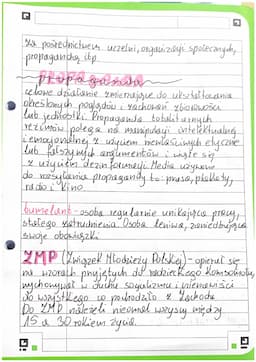 Za pośrednictwem uczelni, organizacji społecznych,
propagandą itp.
propaganda
celowe działanie zmierzające do ukształtowania
określonych poglądów i zachowań zbiorowości
lub jednostki. Propaganda totalitarnych
reżimów polega na manipulacji intelektualnej
i emocjonalnej z użyciem niewłaściwych etycznie
lub fałszywych argumentów i wiąże się
z użyciem dezinformacji. Media używane
do rozsyłania propagandy to: prasa, plakaty,
radio i kino.
bumelant - osoba regularnie unikająca pracy,
stałego zatrudnienia. Osoba leniwa, zaniedbująca
swoje obowiązki
ZMP (Związek Młodzieży Polskiej) - opierał się
na wzorach przyjętych od radzieckiego Komsomołu,
wychowywał w duchu socjalizmu i nienawiści
do wszystkiego co pochodziło z Zachodu.
Do ZMP należeli niemal wszyscy między
15 a 30 rokiem życia.